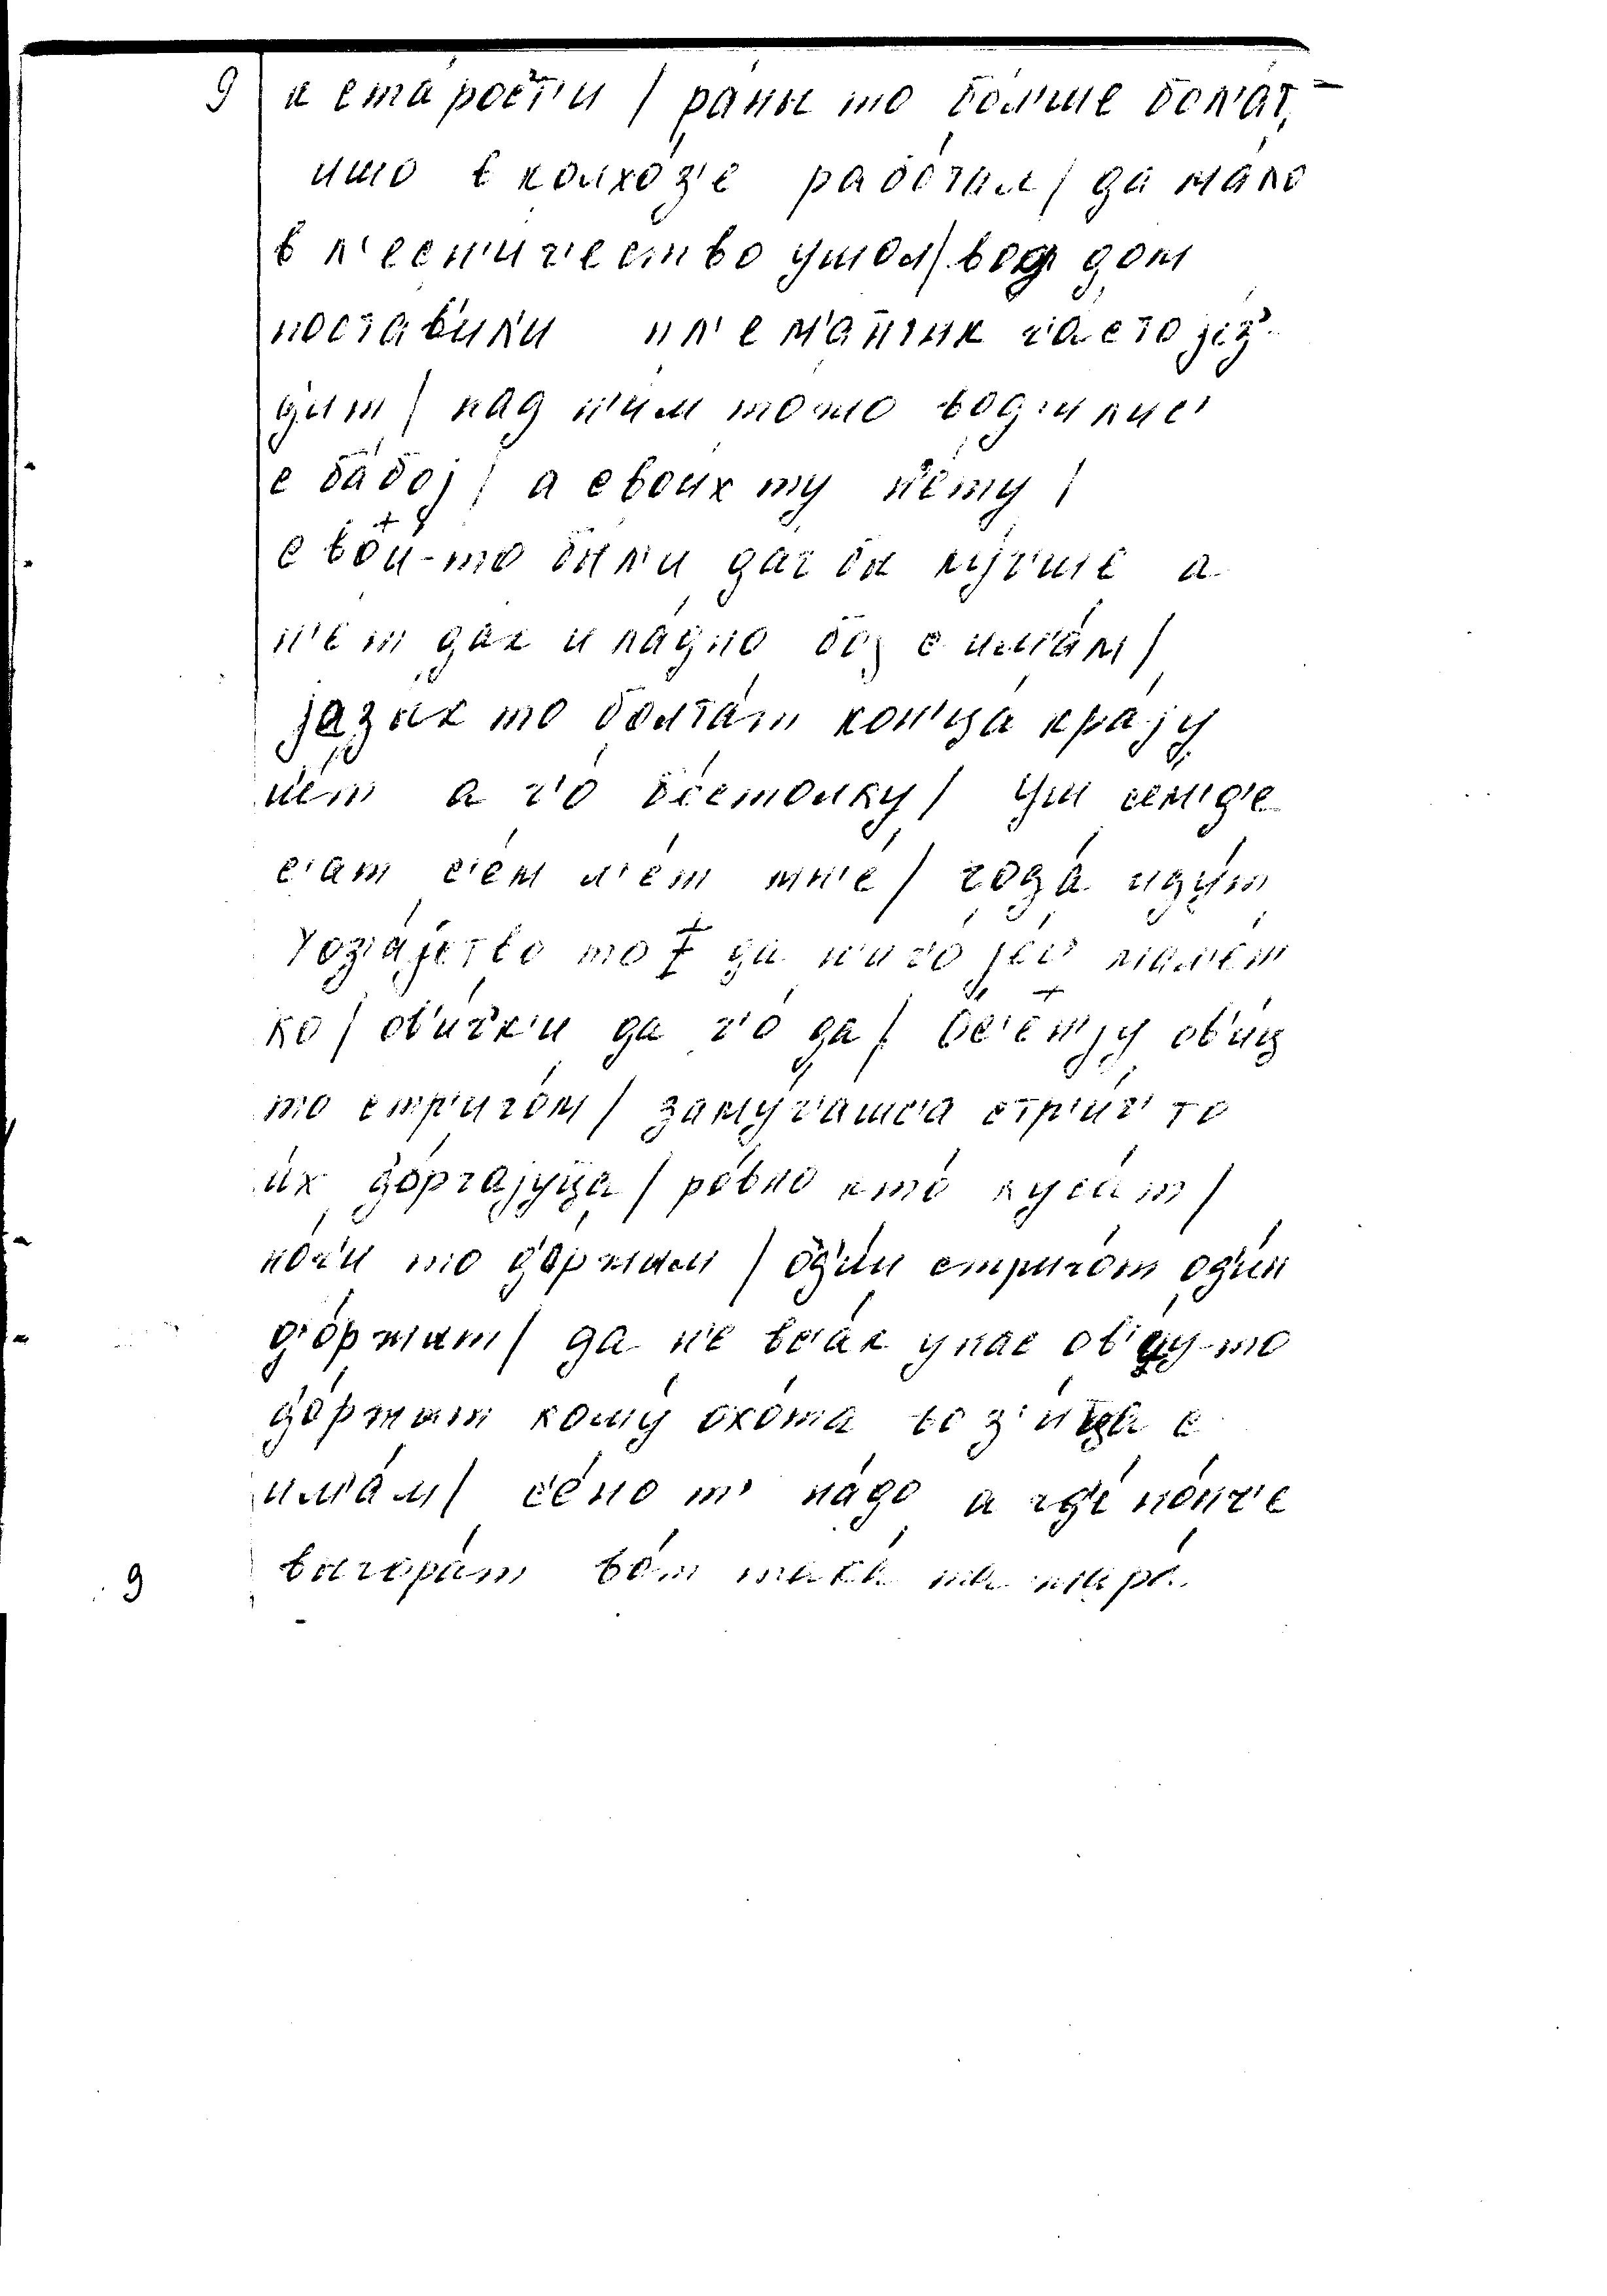 9 к ста́рос'т'и / ра́ны то бо́л'ше бол'а́т,
што в колхо́з'е рабо́тал / да ма́ло
в л'есн'и́ч'ество ушо́л / вод дом
поста́в'ил'и пл'ем'а́нн'ик ч'а́сто jе́з'-
д'ит / над н'и́м то́жо вод'и́лис'
с ба́боj / а свои́х ту н'е́ту /
свои́-то бы́л'и дак бы лу́ч'ше а
н'е́т дак и ла́дно бо́j с им'а́м /
jазы́к то болта́т кон'ца́ кра́jу
н'е́т а ч'о́ бе́столку / уш с'ем'д'е
с'ат с'е́м л'е́т мн'е́ / года́ иду́т
хоз'а́jство то да н'ич'о́ jе́с' мал'е́н'
ко / ов'и́ч'к'и да ч'о́ да / ов'и́ц
то стр'иго́м / заму́ч'аш'с'а стр'и́ч' то
и́х д'о́ргаjуца / ро́вно кто́ куса́т /
но́г'и то д'о́ржым / од'и́н стриго́т од'и́н
д'о́ржыт / да н'е вс'а́к у нас ов'цу́-то
д'о́ржыт кому́ охо́та воз'и́ца с
им'а́м / с'е́но т' на́до а гд'е́ но́нч'е
выгора́т во́т така́ жара́
9